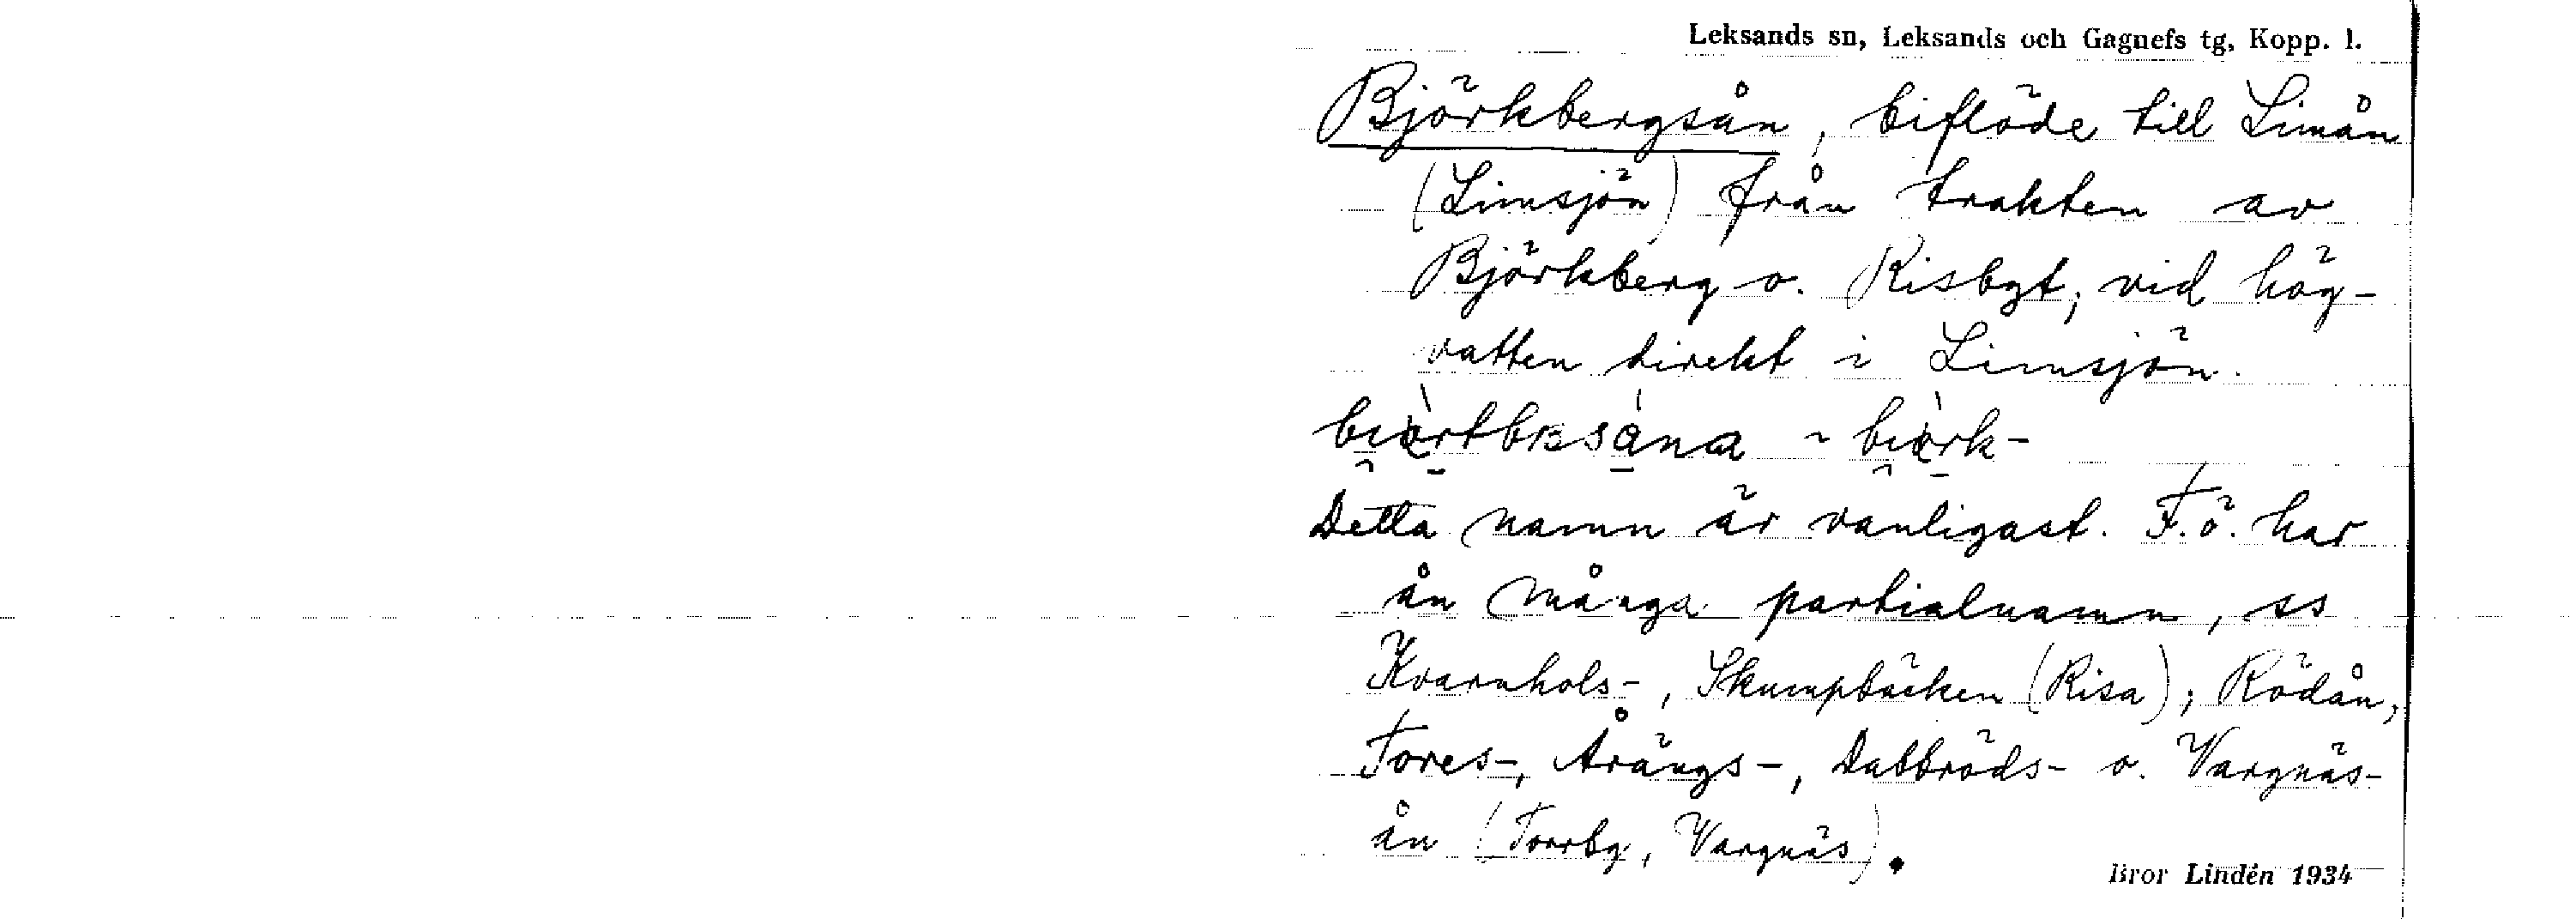 Leksands sn, Leksands och Gagnefs tg, Kopp. l.
Björkbergsån, biflöde till Limån
(Limsjön) från trakten av
Björkberg o. Risbgt; vid hög-
vatten direkt i Limsjön.
~
Detta namn är vanligast. F.ö. har
ån många partialnamn, ss
Kvarnhols-, Skumpbäcken (Risa); Rödån,
Tores-, Årängs-, Dabbröds- o. Vargnäs-
ån (Torrbg, Vargnäs).
Bror Lindén 1934